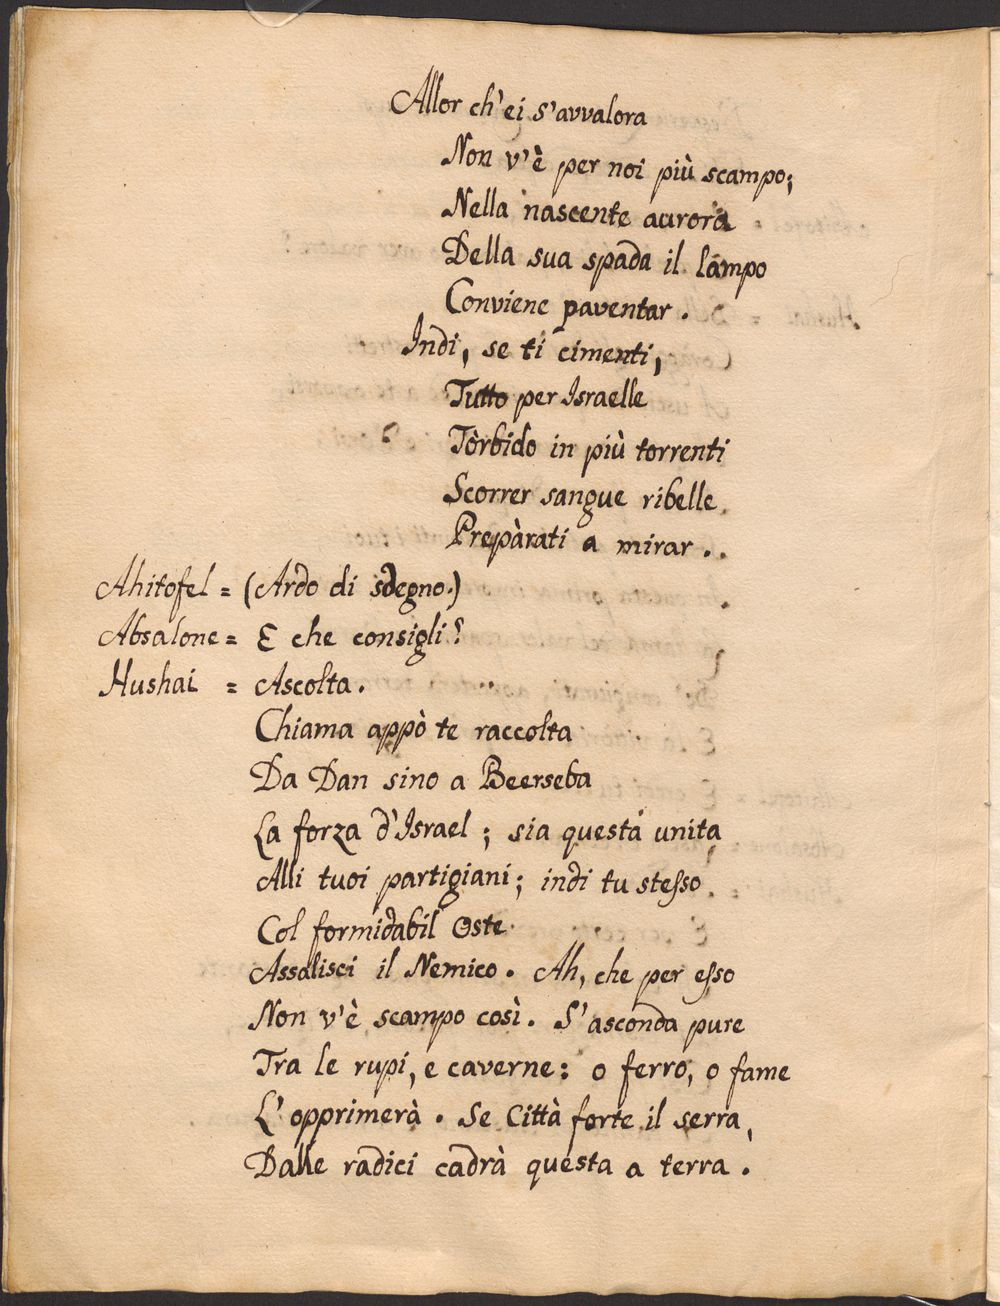 Allor ch'ei s'avvalora
Non v'è per noi più scampo;
Nella nascente aurora
Della sua spada il lampo
Conviene paventar.
Indi, se ti cimenti,
Tutto per Israelle
Tòrbido in più torrenti
Scorrer sangue ribelle
Prepàrati a mirar..
Ahitofel = (Ardo di sdegno.)
Absalone = E che consigli?
Hushai = Ascolta.
Chiama appò te raccolta
Da Dan sino a Beerseba
La forza d'Israel; sia questa unita
Alli tuoi partigiani; indi tu stesso
Col formidabil Oste
Assalisci il Nemico. Ah, che per esso
Non v'è scampo così. S'asconda pure
Tra le rupi, e caverne: o ferro, o fame
L'opprimerà. Se Città forte il serra,
Dalle radici cadrà questa a terra.